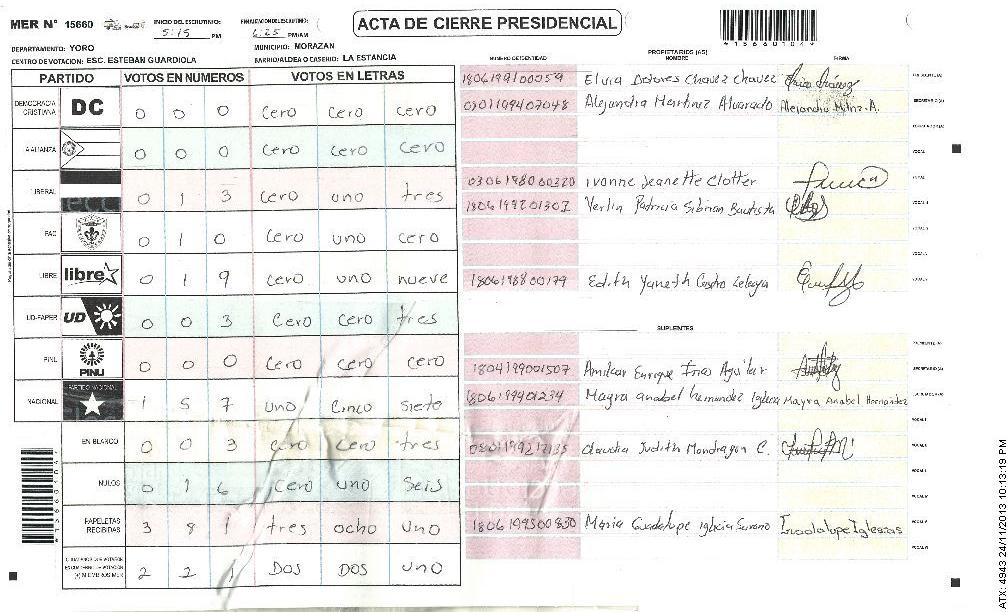 MER N° 15660
INICIO DEL ESCRUTINIO: 5:15 PM
FINALIZACION DEL ESCRUTINIO: 6:25 PM/AM
ACTA DE CIERRE PRESIDENCIAL
DEPARTAMENTO: YORO
MUNICIPIO: MORAZAN
CENTRO DE VOTACION: ESC. ESTEBAN GUARDIOLA
BARRIO/ALDEA O CASERIO: LA ESTANCIA
PARTIDO VOTOS EN NUMEROS VOTOS EN LETRAS
DEMOCRACIA CRISTIANA DC 0 0 0 cero cero cero
ALIANZA 0 0 0 cero cero cero
LIBERAL 0 1 3 cero uno tres
PAC 0 1 0 cero uno cero
LIBRE libre 0 1 9 cero uno nueve
UD-FAPER UD 0 0 3 cero cero tres
PINU PINU 0 0 0 cero cero cero
NACIONAL PARTIDO NACIONAL 1 5 7 uno cinco siete
EN BLANCO 0 0 3 cero cero tres
NULOS 0 1 6 cero uno seis
PAPELETAS RECIBIDAS 3 8 1 tres ocho uno
2 2 1 DOS DOS uno
NUMERO DE IDENTIDAD PROPIETARIOS (AS) NOMBRE FIRMA
1806199100059 Elvia Dolores Chavez Chavez
0301199407048 Alejandra Martinez Alvarado Alejandra Mtnz. A.
0306198000320 Ivonne Jeanette Clotter
1806199201307 Yerlin Patricia Sibrian Bautista
1806198800179 Edith Yaneth Castro Zelaya
SUPLENTES
1804199001507 Amilcar Enrique Aguilar
1806199401234 Mayra anabel hernandez Iglesia Mayra Anabel Hernandez
Claudia Judith Mondragon C.
1806199500830 Maria Guadalupe Iglesia Guadalupe Iglesias
ATX: 4943 24/11/2013 10:13:19 PM